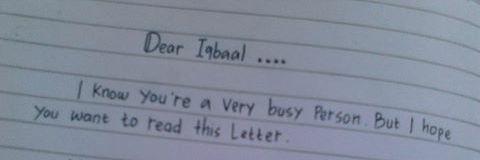 Dear Iqbaal ....
I Know You're a Very busy Person. But I hope
You want to read this Letter.